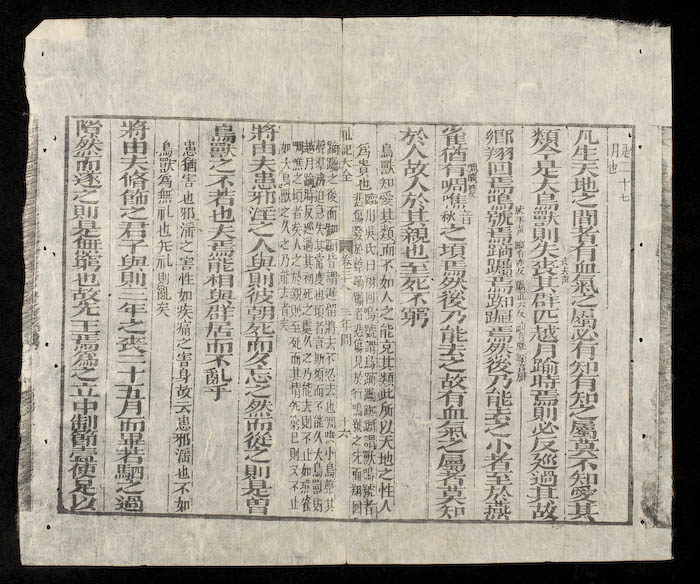 月也
凡生天地之間者有血氣之屬必有知有知之屬莫不知愛其
類今是大鳥獸則失喪其群匹越月踰時焉則必反巡過其故
鄉翔回焉鳴號焉蹢䠱焉踟躕焉然後乃能去之小者至於燕
雀猶有啁噍之頃焉然後乃能去之故有血氣之屬者莫知
於人故人於其親也至死不窮
鳥獸知愛其類而不如人之能充其類此所以天地之性人
爲貴也
臨川吳氏曰翔回鳴號謂鳥蹢䠱踟躕謂獸鳴號者
禮記大全
卷二十八
三年問
十六
如大鳥獸之久之乃能去者矣
將由夫患邪淫之人與則彼朝死而夕忘之然而從之則是曾
鳥獸之不若也夫焉能相與群居而不亂乎
患猶害也邪淫之害性如疾痛之害身故云患邪淫也不如
鳥獸爲無禮也無禮則亂矣
將由夫脩飾之君子與則三年之喪二十五月而畢若駟之過
隙然而遂之則是無窮也故先王焉爲之立中制節壹使足以